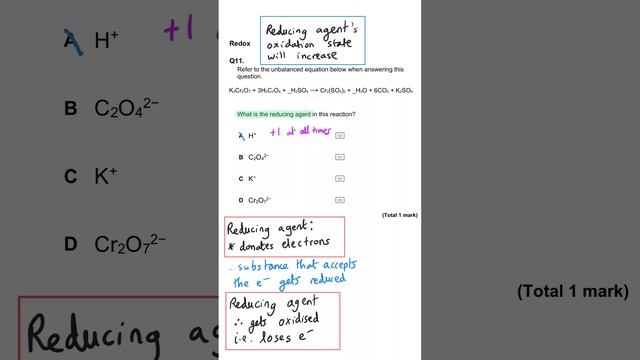 Reducing agent's
oxidation state
will increase
Redox
Q11.
Refer to the unbalanced equation below when answering this
question.
K₂Cr₂O₇ + 3H₂C₂O₄ + _H₂SO₄ ⟶ Cr₂(SO₄)₃ + _H₂O + 6CO₂ + K₂SO₄
What is the reducing agent in this reaction?
A H⁺ +1 at all times
B C₂O₄²⁻
C K⁺
D Cr₂O₇²⁻
(Total 1 mark)
Reducing agent:
* donates electrons
...substance that accepts
the e⁻ gets reduced
Reducing agent
∴ gets oxidised
i.e. loses e⁻
A H⁺ +1
B C₂O₄²⁻
C K⁺
D Cr₂O₇²⁻
Reducing ag
(Total 1 mark)